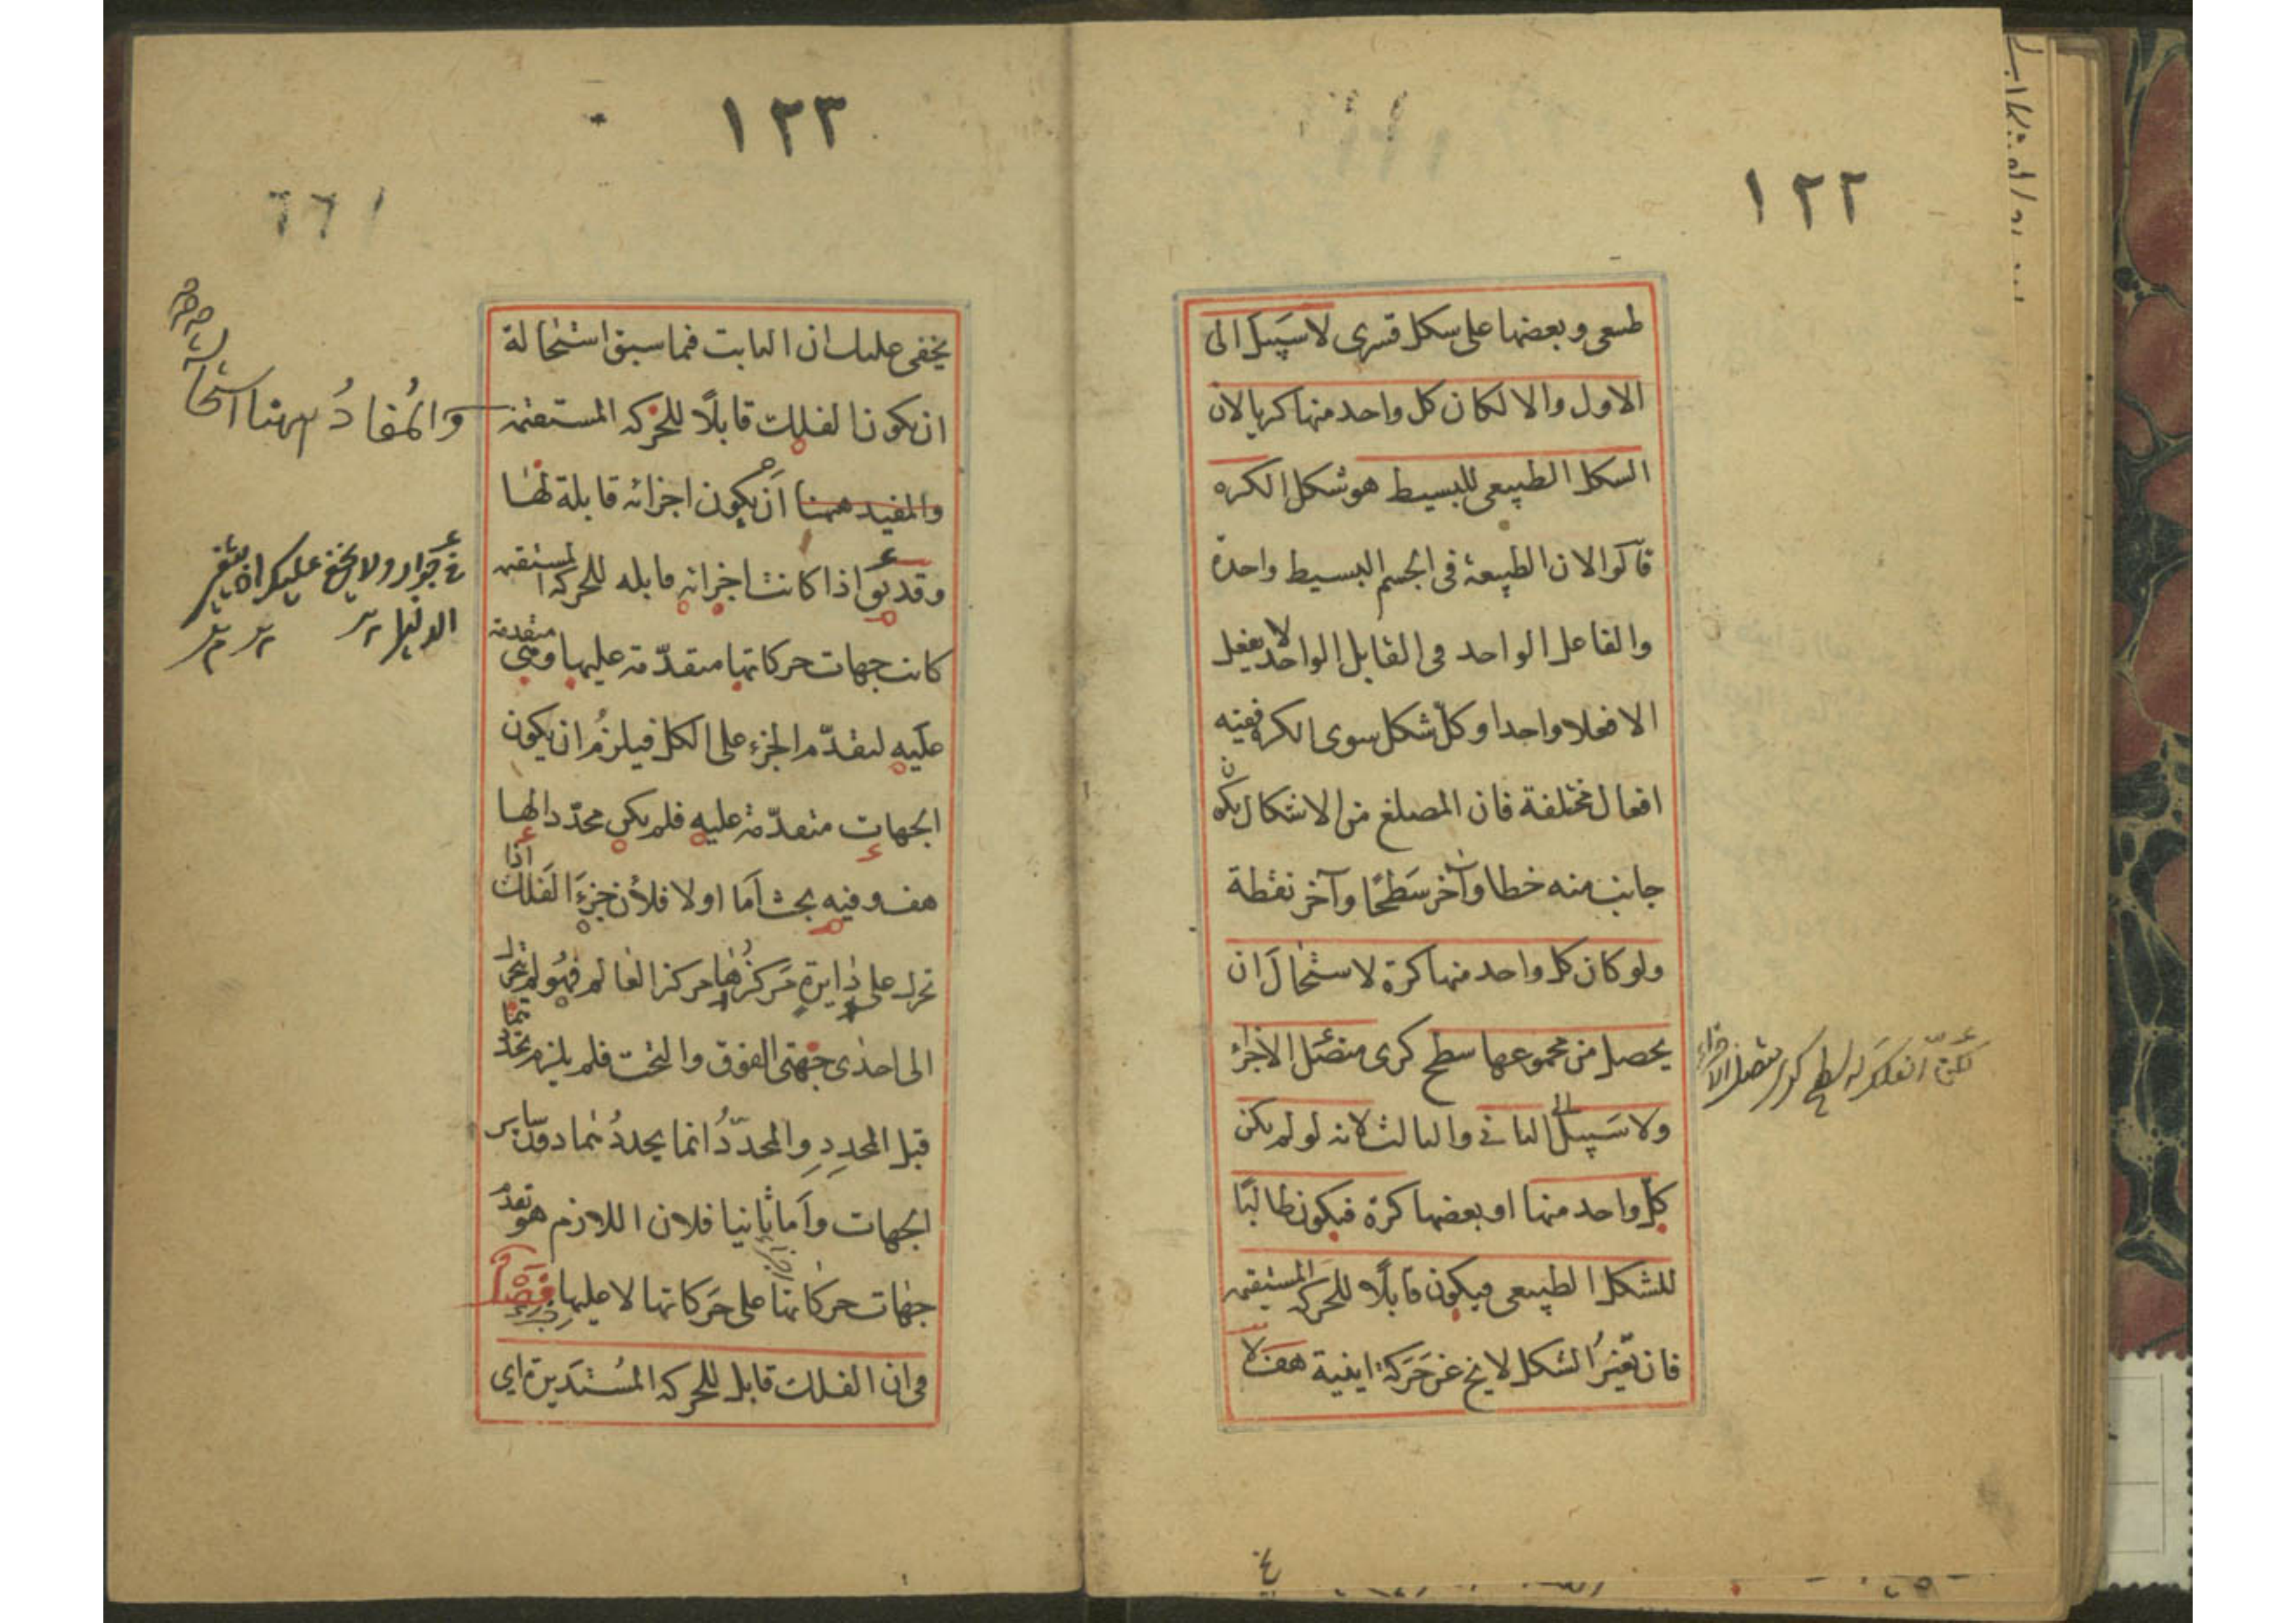 ١٢٢
طبيعى وبعضها على شكل قسرى لا سَبيل الى
الاول والا لكان كل واحد منها كريا لان
الشكل الطبيعى للبسيط هو شكل الكره
قالوا لان الطبيعة فى الجسم البسيط واحدة
والفاعل الواحد فى القابل الواحد لا يفعل
الا فعلا واحدا وكلّ شكل سوى الكره ففيه
افعال مختلفة فان المضلع من الاشكال يكون
جانب منه خطا وآخر سَطحًا وآخر نقطة
ولو كان كل واحد منها كرة لاستحالَ ان
يحصل من مجموعها سطح كرى متصّل الاجزاء
ولا سَبيل الى الثانى والثالث لانه لو لم يكن
كلّ واحد منها او بعضها كرة فيكون طالبًا
للشكل الطبيعى فيكون قابلًا للحركه المستقيمه
فان تغيّرُ الشكل لا يخ عن حَرَكة اينية هف لا
لكنّ الفلك له سطح كرى متصل الاجزاء
١٢٣
يخفى عليك ان الثابت فيما سبق استحالة
ان يكون الفلك قابلًا للحركه المستقيمه
والمفيد ههنا اَن يكون اجزائه قابلة لها
وقد يق اذا كانت اجزائه قابله للحركه المستقيمه
كانت جهات حركاتها متقدّمة عليها ومتقدمة
عليه لتقدّم الجزء على الكل فيلزمُ ان يكون
الجهات متقدّمة عليه فلم يكن محدّدا لها
هف وفيه بحث اَما اولا فلأن جزءَ الفلك اذا
تحرك على دايرةٍ مَركزُها مركز العالم فهُو لم يتحرك
الى احدى جهتى الفوق والتحت فلم يلزم تحدّدهما
قبل المحدِدِ والمحدّدُ انما يحددُهما دون سائر
الجهات واَما ثانيا فلان اللازم هو تقدّم
جهات حركاتها على حَركاتها لا عليها فصل
فى ان الفلك قابل للحركه المسُتدَيرة اى
والمُفادُ ههنا استحالة
جواز ولا يخفى عليك ان
الدليل